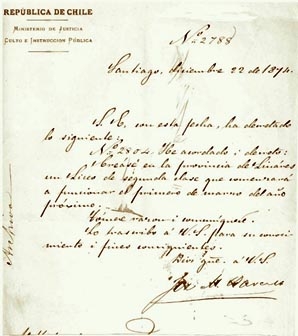 REPÚBLICA DE CHILE
MINISTERIO DE JUSTICIA
CULTO E INSTRUCCIÓN PÚBLICA
Nº 2788
Santiago, diciembre 22 de 1874.
S. E. con esta fecha, ha decretado
lo siguiente:
Nº 2804. He acordado i decreto:
Créase en la provincia de Linares
un Liceo de segunda clase que comenzará
a funcionar el primero de marzo del año
próximo.
Tómese razon i comuníquese.
Lo trascribo a U.S. para su conoci-
miento i fines consiguientes.
Dios gue. a U.S.
José M. Barceló